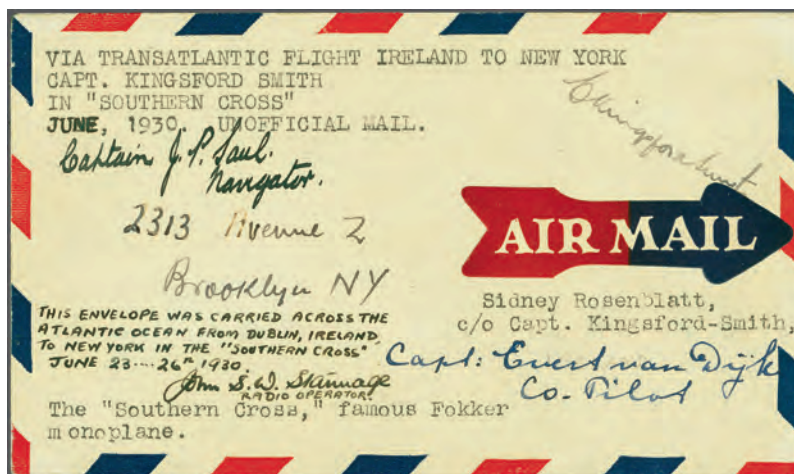 VIA TRANSATLANTIC FLIGHT IRELAND TO NEW YORK
CAPT. KINGSFORD SMITH
IN "SOUTHERN CROSS"
JUNE, 1930. UNOFFICIAL MAIL.
CKingsfordSmith
Captain J. P. Saul.
Navigator.
2313 Avenue Z
Brooklyn NY
AIR MAIL
Sidney Rosenblatt,
c/o Capt. Kingsford-Smith,
THIS ENVELOPE WAS CARRIED ACROSS THE
ATLANTIC OCEAN FROM DUBLIN, IRELAND
TO NEW YORK IN THE "SOUTHERN CROSS"
JUNE 23---26TH 1930.
John S. W. Stannage
RADIO OPERATOR.
Capt: Evert van Dijk
Co-Pilot
The "Southern Cross," famous Fokker
monoplane.